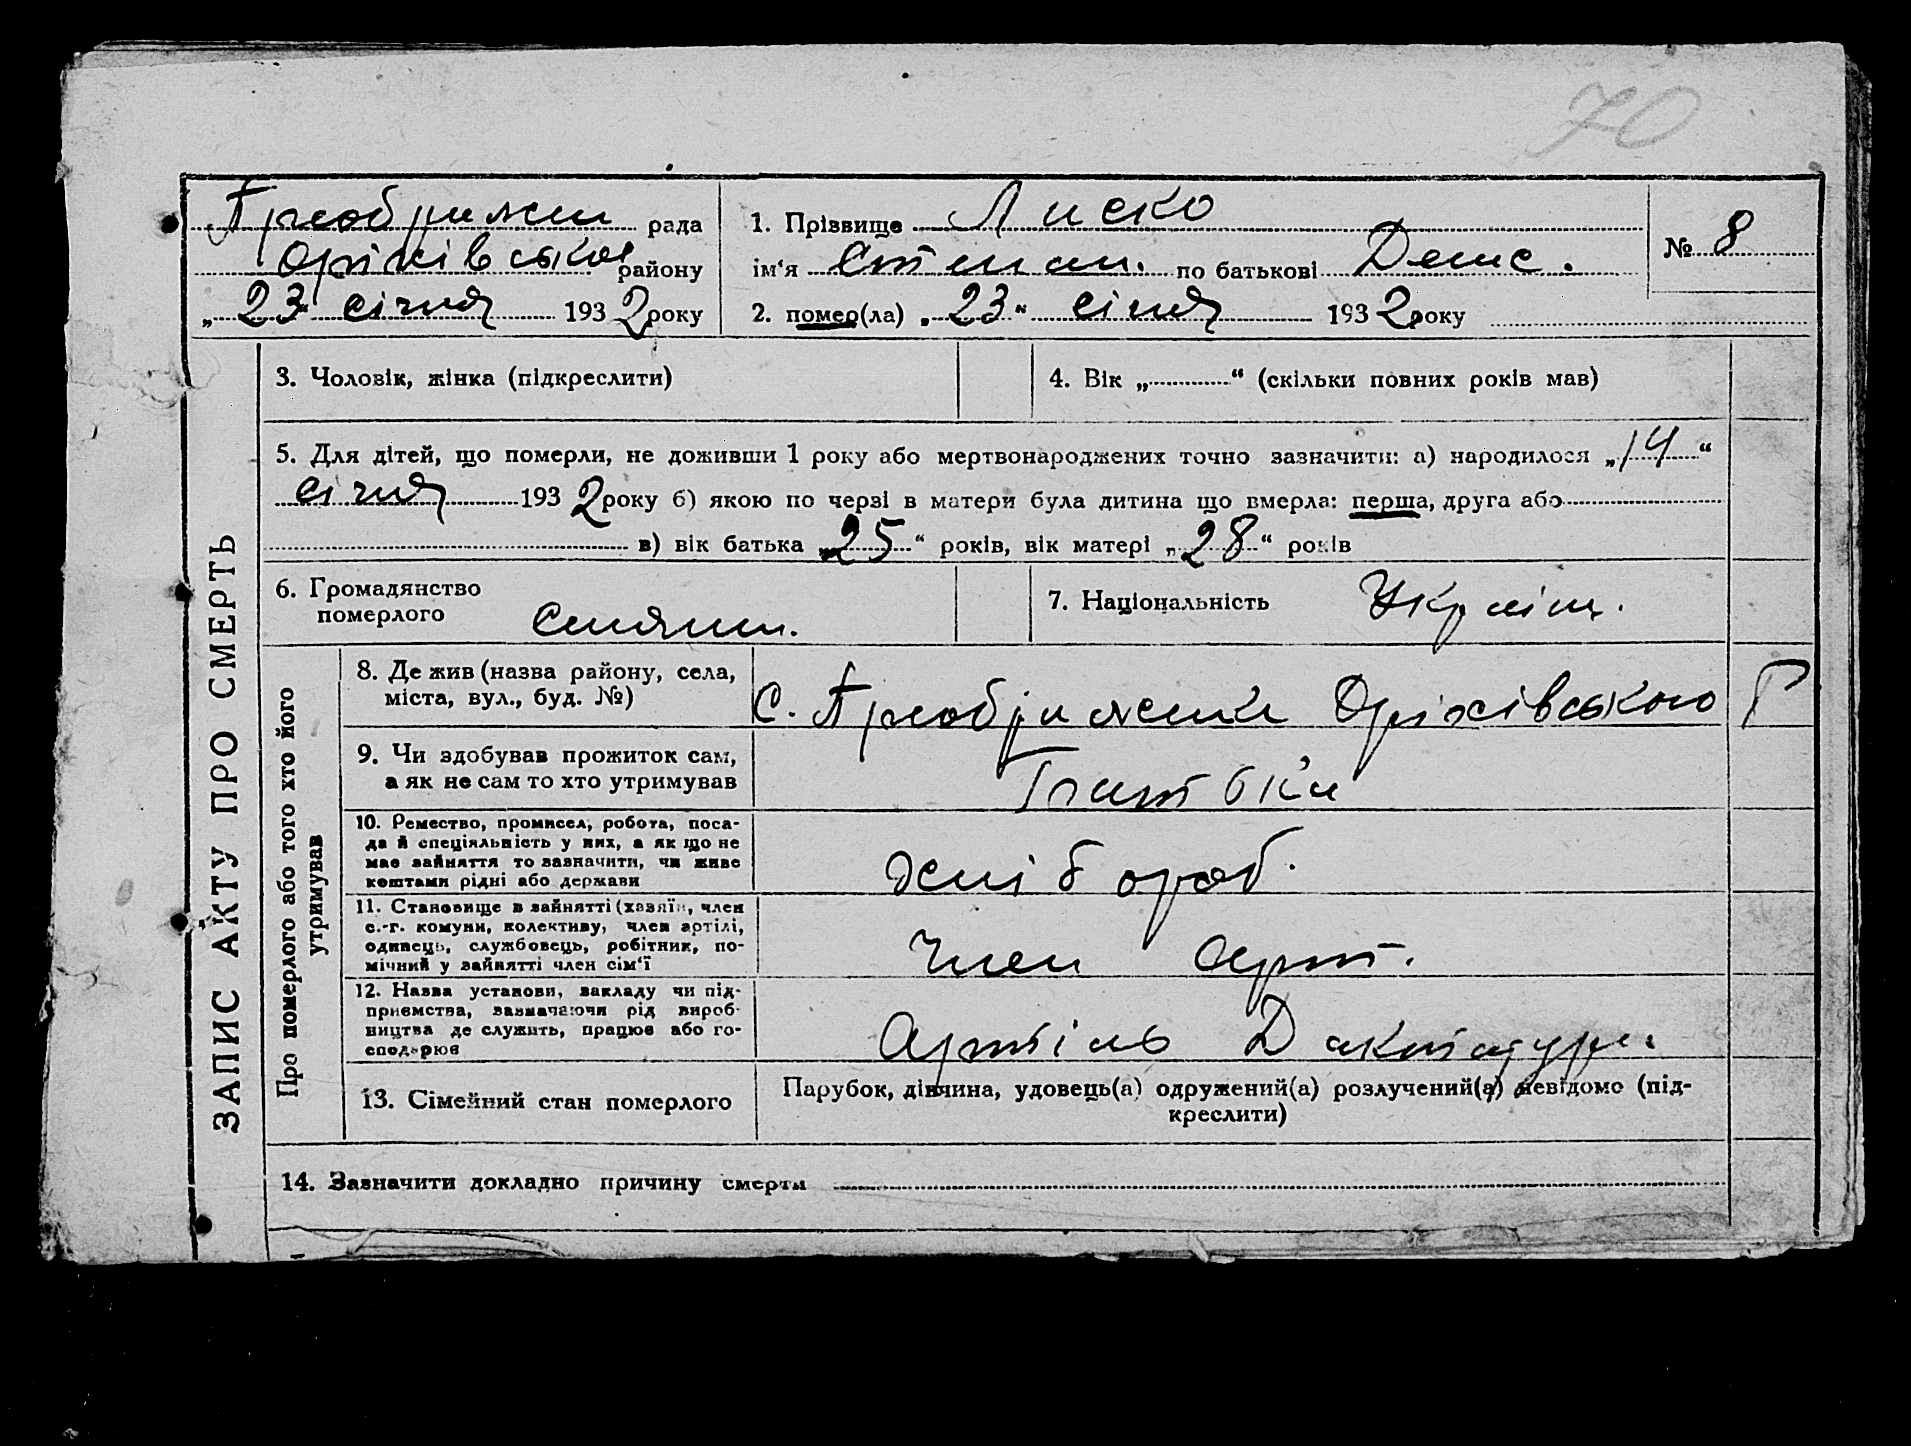 70
Преображен рада
Оріхівськ району
„23" січня 1932 року
1. Прізвище Лиско
ім'я Степан. по батькові Денис.
2. помер(ла) „23" січня 1932 року
№ 8
ЗАПИС АКТУ ПРО СМЕРТЬ
3. Чоловік, жінка (підкреслити)
4. Вік „ " (скільки повних років мав)
5. Для дітей, що померли, не доживши 1 року або мертвонароджених точно зазначити: а) народилося „14"
січня 1932 року б) якою по черзі в матери була дитина що вмерла: перша, друга або
в) вік батька „25" років, вік матері „28" років
6. Громадянство
померлого
Селянин.
7. Національність Україн.
Про померлого або того хто його
утримував
8. Де жив (назва району, села,
міста, вул., буд. №)
С. Преображенка Оріхівського Р
9. Чи здобував прожиток сам,
а як не сам то хто утримував
Батьки
10. Ремество, промисел, робота, поса-
да й спеціяльність у них, а як що не
має зайняття то зазначити, чи живе
коштами рідні або держави
хлібороб.
11. Становище в зайнятті (хазяїн, член
с.-г. комуни, колективу, член артілі,
одинець, службовець, робітник, по-
мічний у зайнятті член сім'ї
Член арт.
12. Назва установи, закладу чи під-
приємства, зазначаючи рід вироб-
ництва де служить, працює або го-
сподарює
Артіль Диктатура
13. Сімейний стан померлого
Парубок, дівчина, удовець(а) одружений(а) розлучений(а) невідомо (під-
креслити)
14. Зазначити докладно причину смерти